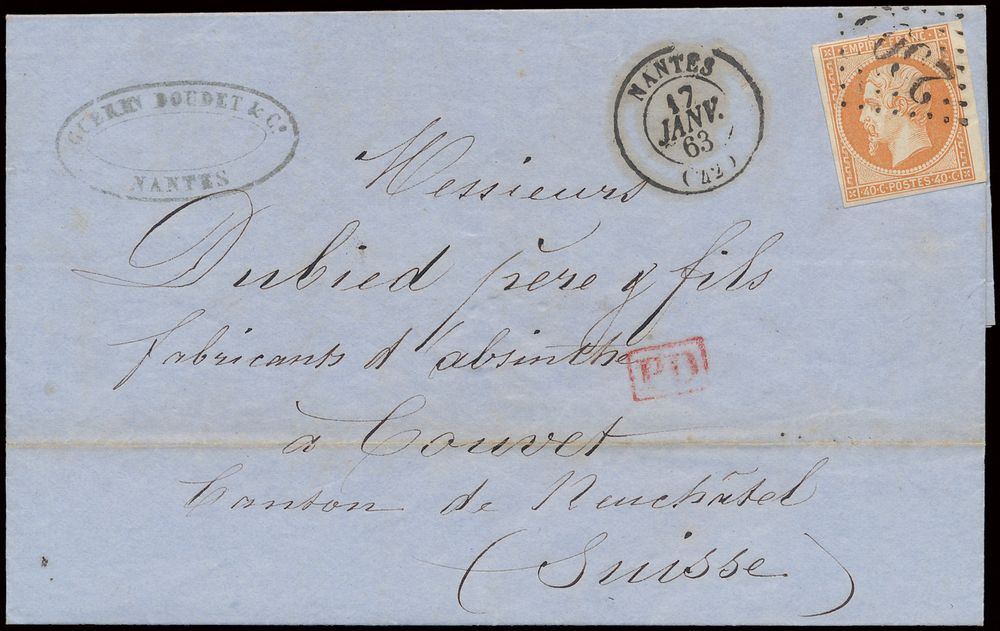 GUERIN BOUDET & Cᵒ
NANTES
NANTES
17
JANV.
63
(42)
EMPIRE FRANC
40·C·POSTES·40·C
Messieurs
Dubied père & fils
fabricants d'absinthe
PD
à Couvet
Canton de Neuchâtel
(Suisse)